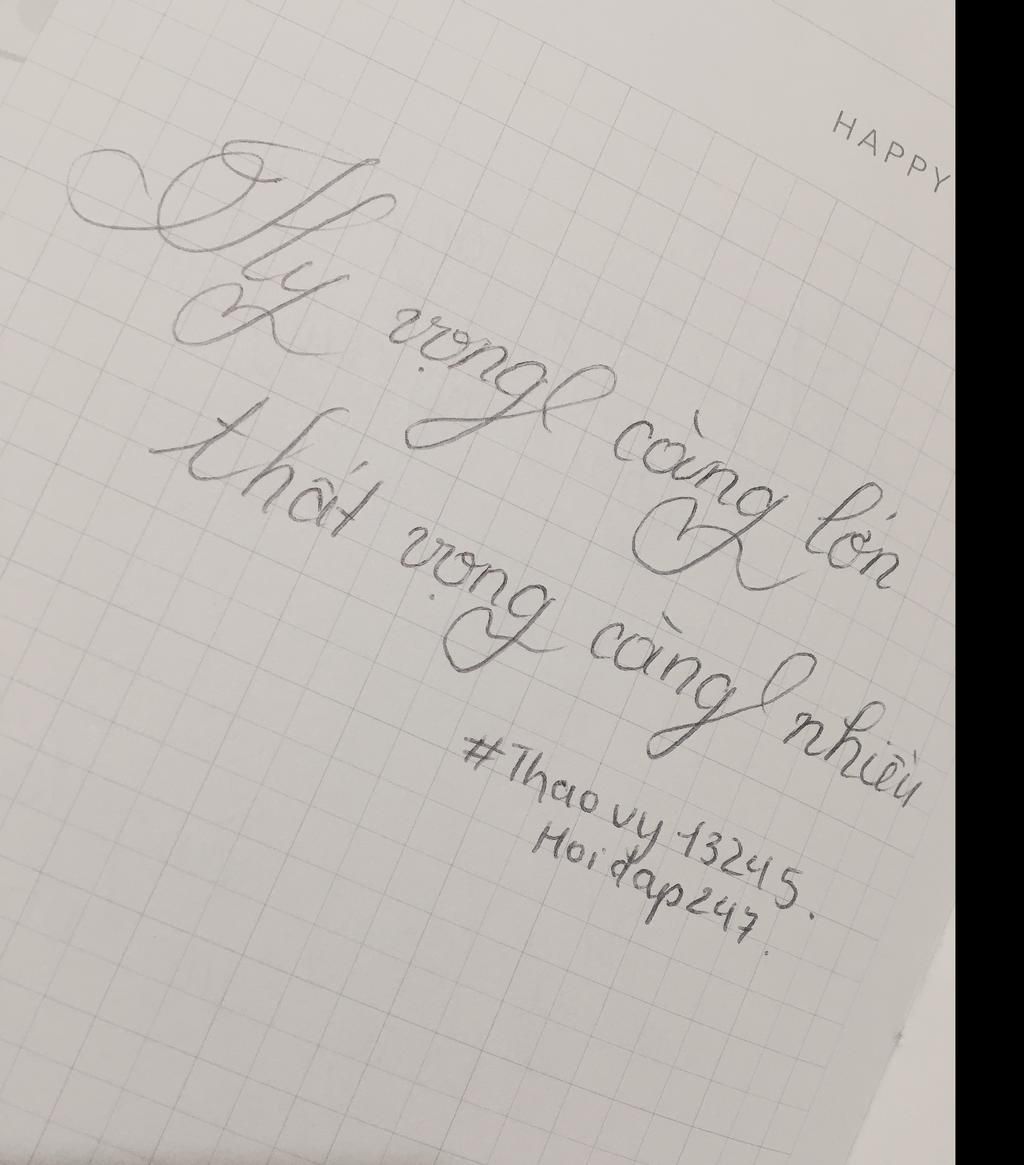 HAPPY
Hy vọng càng lớn
thất vọng càng nhiều
#Thaovy13245.
Hoiđap247.